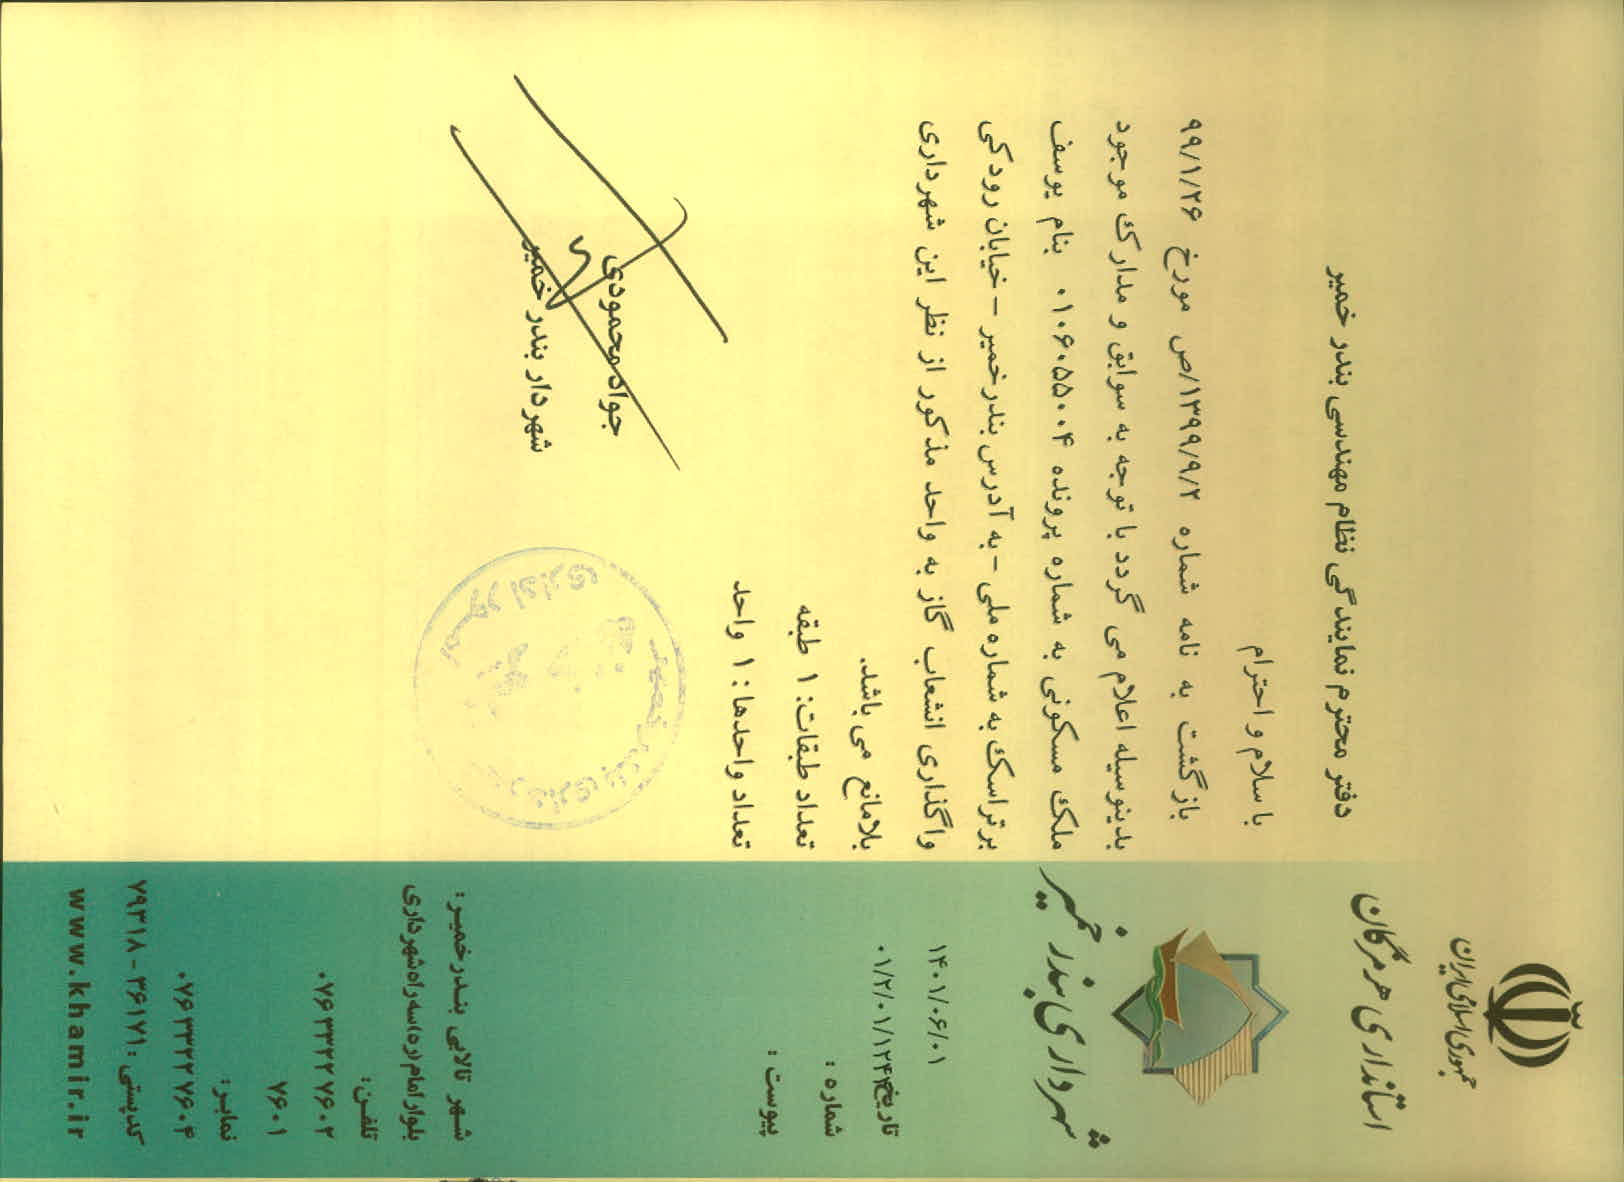 جمهوری اسلامی ایران
استانداری هرمزگان
شهرداری بندر خمیر
۱۴۰۱/۰۶/۰۱
تاریخ:
۰۱/۲/۰۱/۱۲۴۲
شماره :
پیوست :
دفتر محترم نمایندگی نظام مهندسی بندر خمیر
با سلام و احترام
بازگشت به نامه شماره ۱۳۹۹/۹/۲/ص مورخ ۹۹/۱/۲۶
بدینوسیله اعلام می گردد با توجه به سوابق و مدارک موجود
ملک مسکونی به شماره پرونده ۰۱۰۶۰۵۵۰۰۴ بنام یوسف
برتراسک به شماره ملی - به آدرس بندرخمیر - خیابان رودکی
واگذاری انشعاب گاز به واحد مذکور از نظر این شهرداری
بلامانع می باشد.
تعداد طبقات: ۱ طبقه
تعداد واحدها: ۱ واحد
جواد محمودی
شهردار بندر خمیر
شهر تالابی بندرخمیر:
بلوار امام(ره)سه راه شهرداری
تلفن:
۰۷۶۳۳۲۲۷۶۰۲
۷۶۰۱
نمابر:
۰۷۶۳۳۲۲۷۶۰۴
کدپستی: ۳۶۱۷۱-۷۹۳۱۸
www.khamir.ir